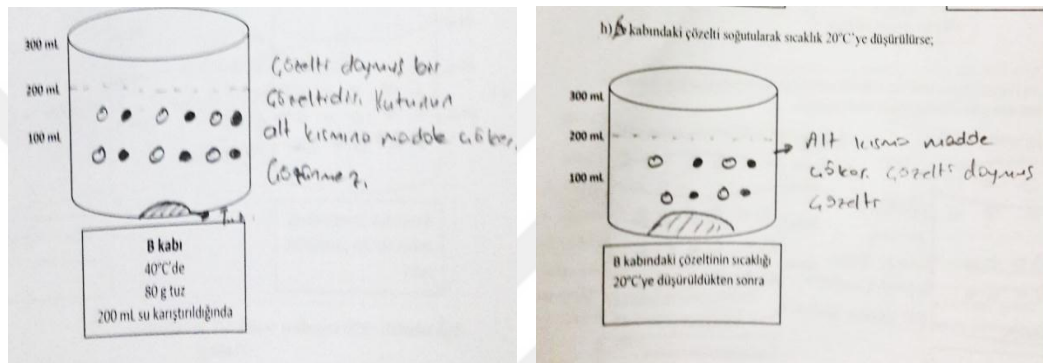 300 mL
200 mL
100 mL
Çözelti doymuş bir
Çözeltidir. Kutunun
alt kısmına madde çöker,
Çözünmez.
B kabı
40°C'de
80 g tuz
200 mL su karıştırıldığında
h) kabındaki çözelti soğutularak sıcaklık 20°C'ye düşürülürse;
300 mL
200 mL
100 mL
Alt kısma madde
çöker. Çözelti doymuş
Çözelti
B kabındaki çözeltinin sıcaklığı
20°C'ye düşürüldükten sonra